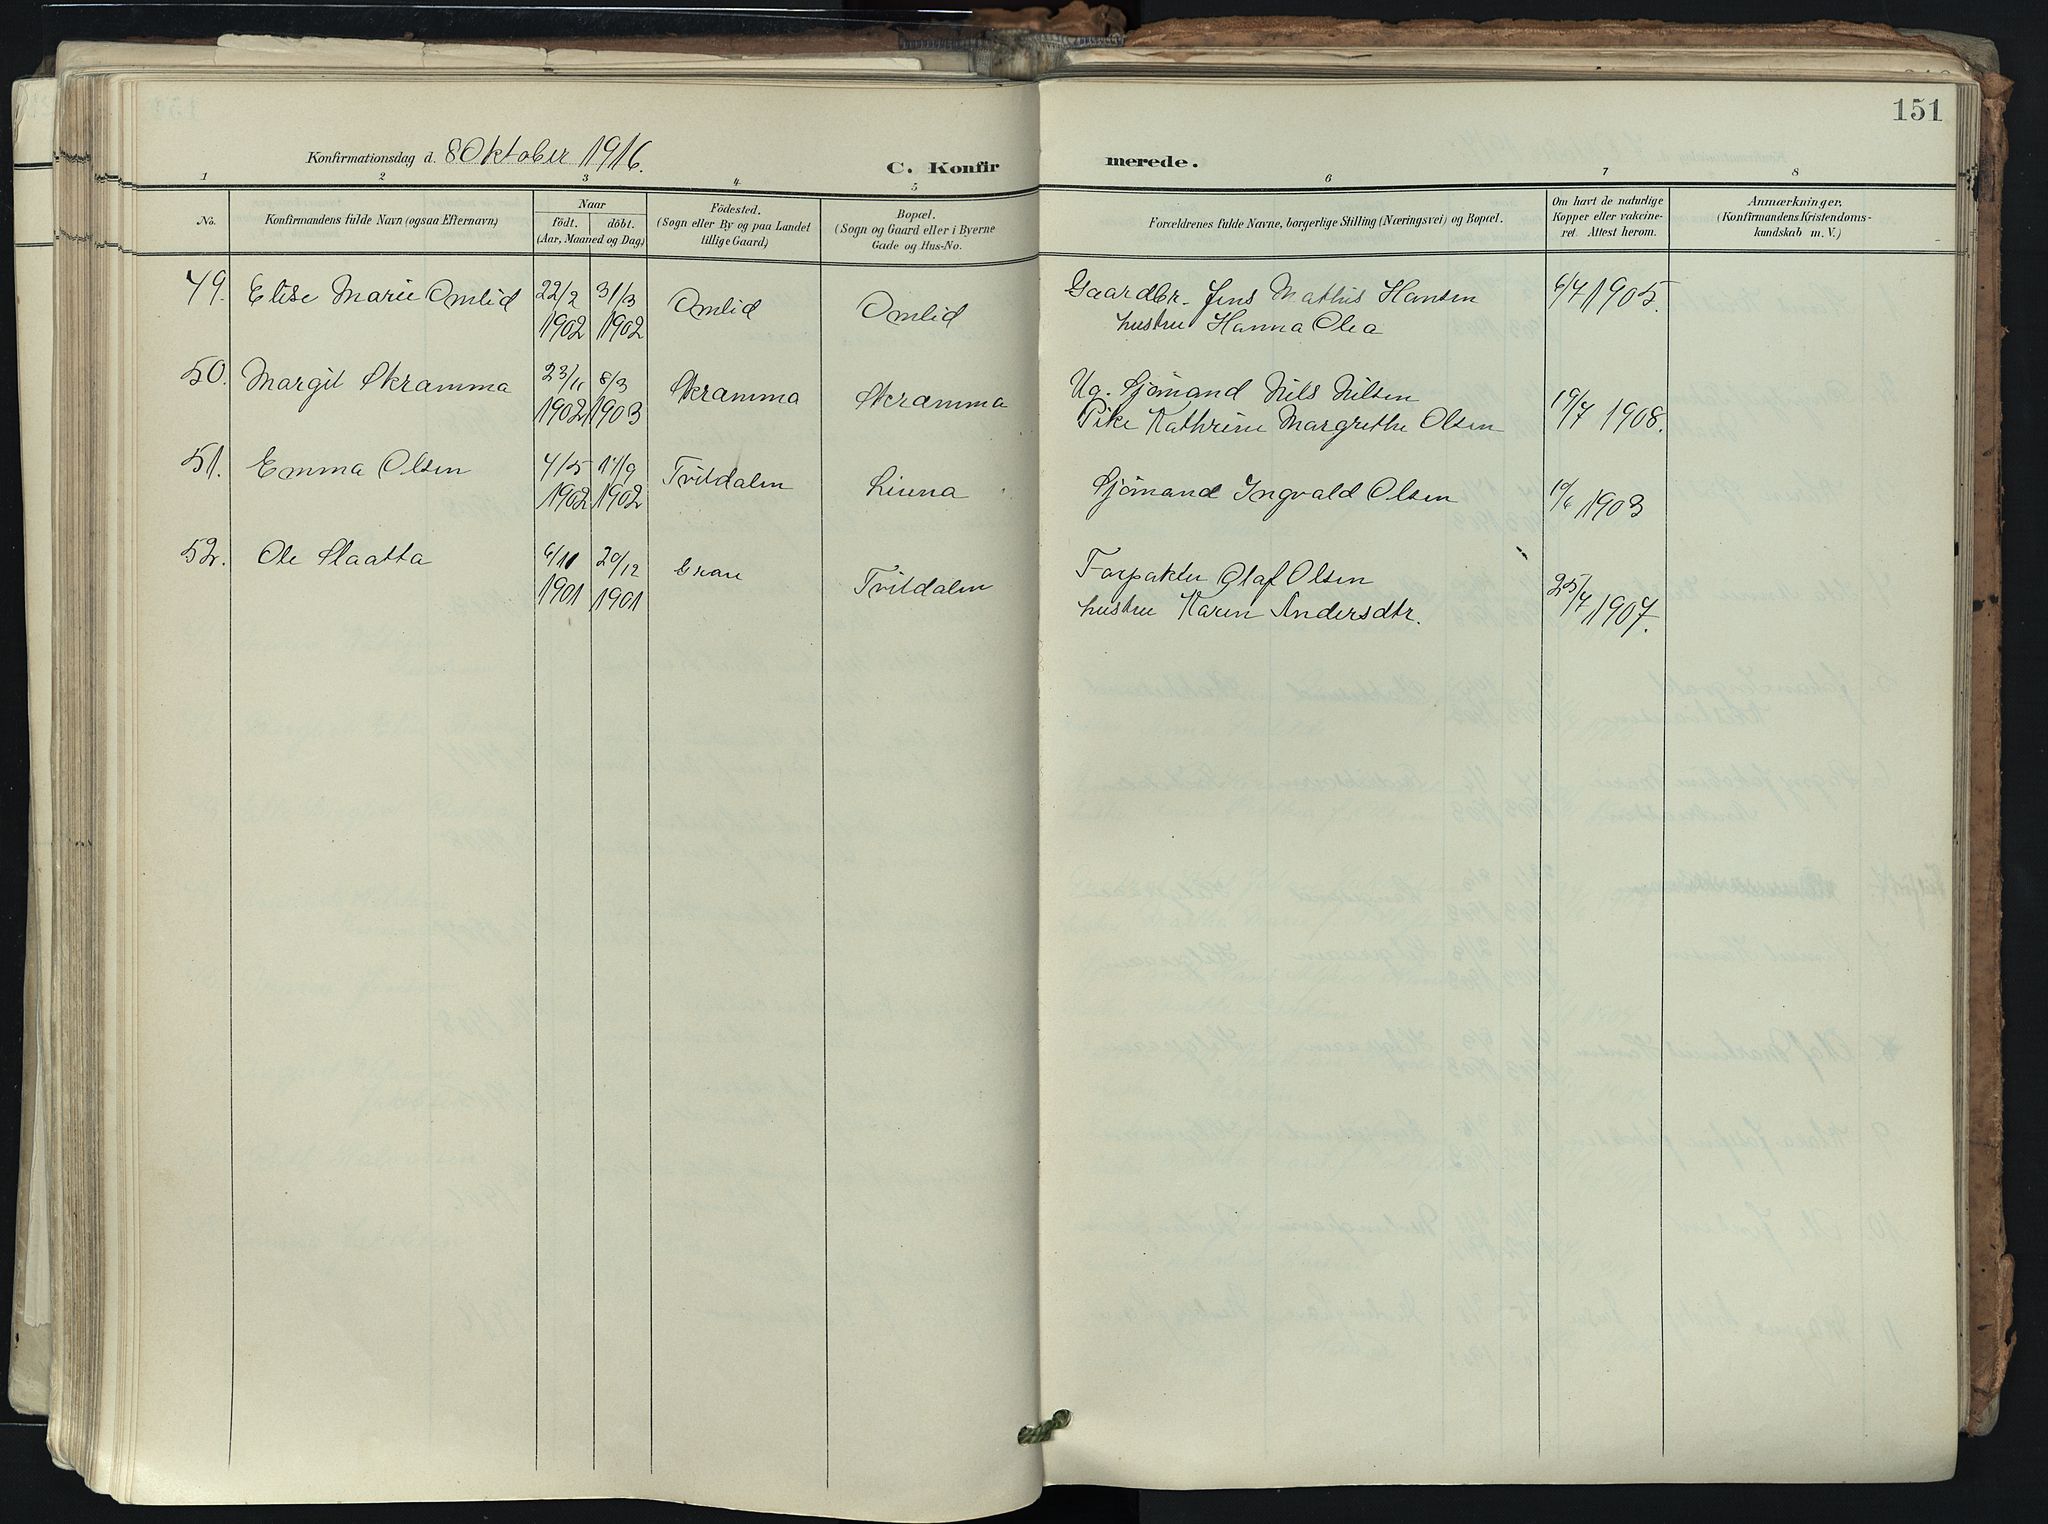 151
Konfirmationsdag d. 8 Oktober 1916.
C. Konfirmerede.
1 2 3 4 5 6 7 8
No. Konfirmandens fulde Navn (ogsaa Efternavn)
Naar
födt. döbt.
(Aar, Maaned og Dag)
Födested.
(Sogn eller By og paa Landet
tillige Gaard)
Bopæl.
(Sogn og Gaard eller i Byerne
Gade og Hus-No.
Forældrenes fulde Navne, borgerlige Stilling (Næringsvei) og Bopæl.
Om havt de naturlige
Kopper eller vakcine-
ret. Attest herom.
Anmærkninger,
(Konfirmandens Kristendoms-
kundskab m. V.)
49. Elise Marie Omlid 22/2 31/3 Omlid Omlid Gaardbr. Jens Mathis Hansen 6/7 1905.
1902 1902 hustru Hanna Olea
50. Margit Skramma 23/11 8/3 Skramma Skramma Ug. Sjömand Nils Nilsen
1902 1903 Pike Kathrine Margrethe Olsen 19/7 1908.
51. Emma Olsen 4/5 17/9 Tvitdalen Liuna Sjömand Ingvald Olsen 19/6 1903
1902 1902
52. Ole Slaatta 6/11 29/12 Grav Tvitdalen Forpakter Olaf Olsen
1901 1901 hustru Karen Andersdtr. 25/7 1907.